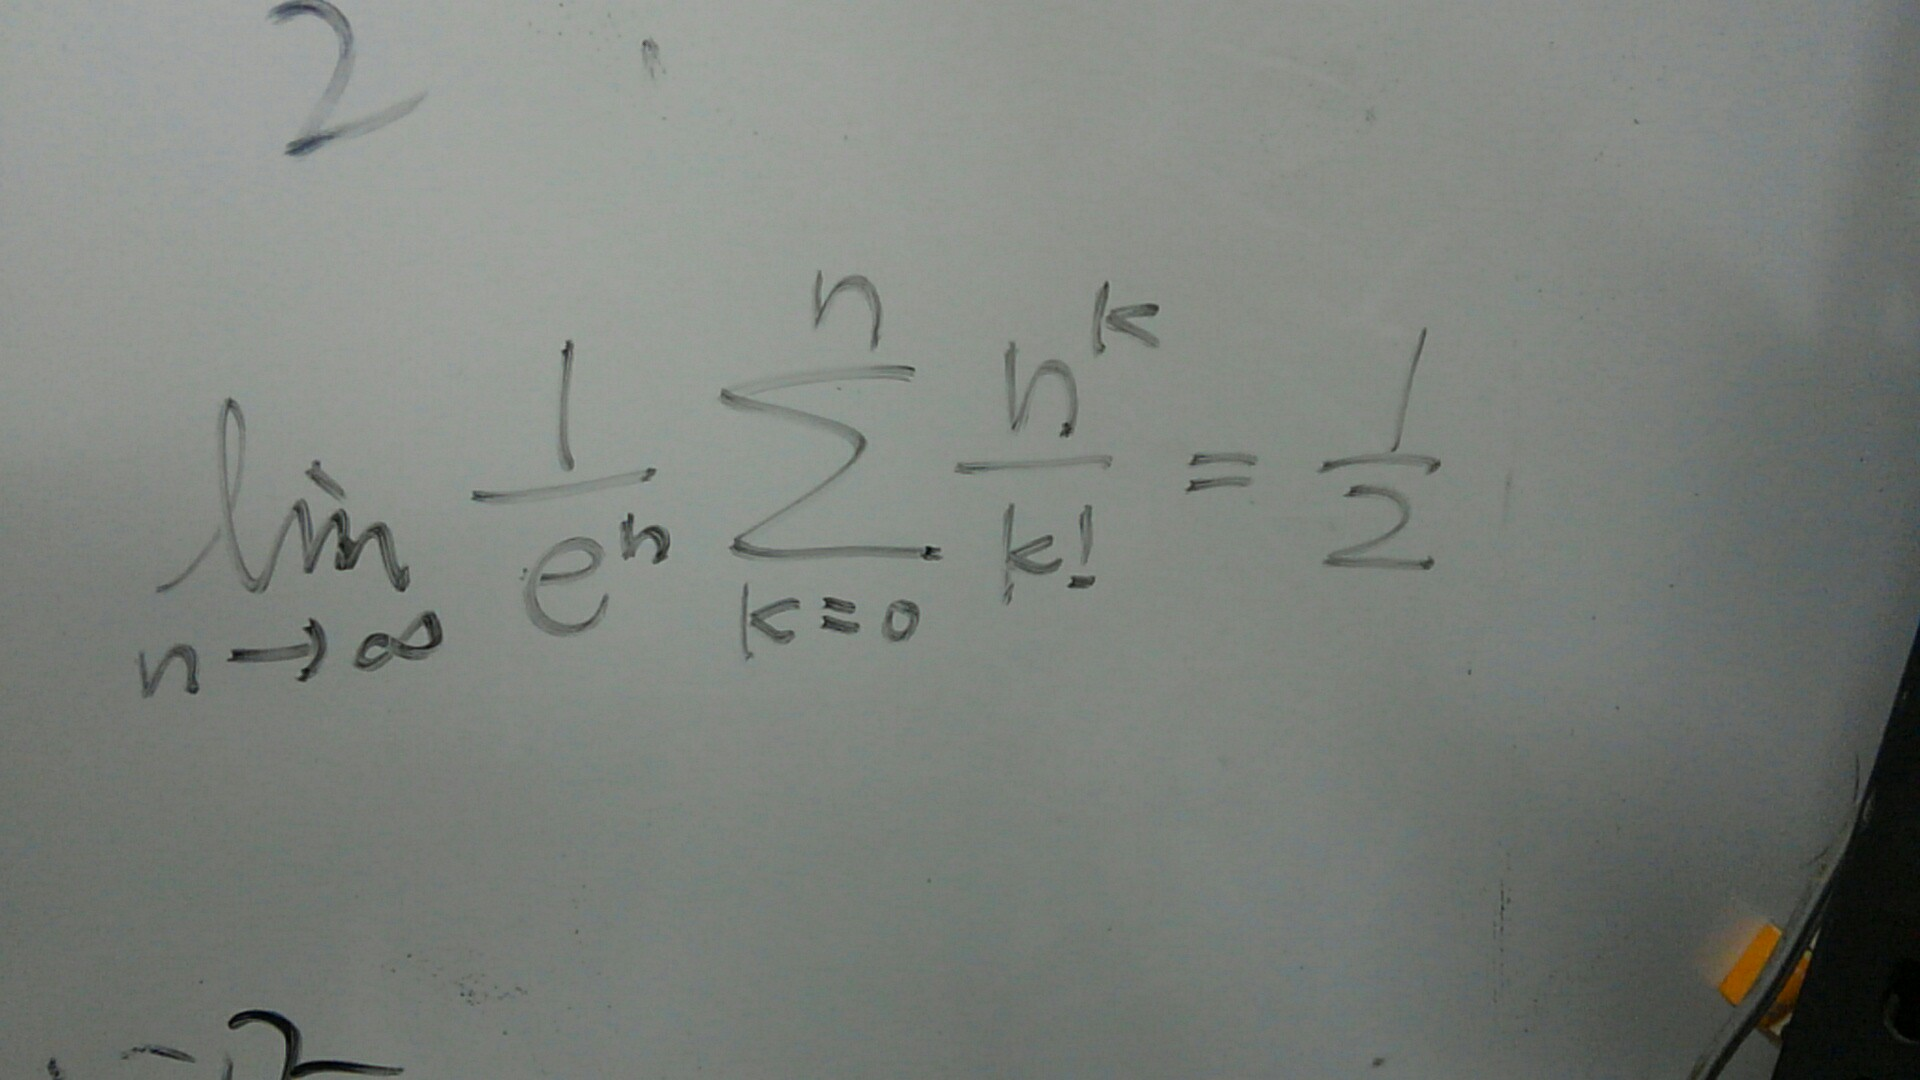 2
lim n→∞ 1/e^n ∑ k=0 n n^k/k! = 1/2
2